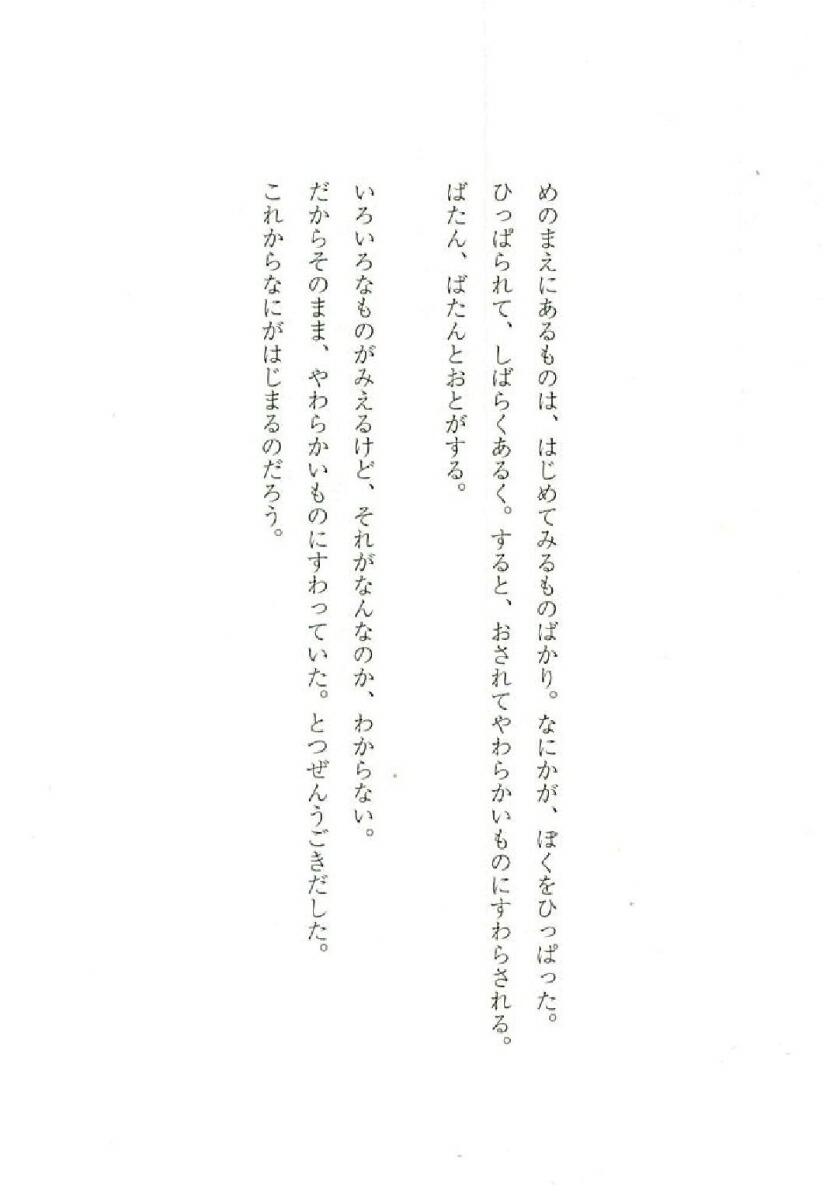 めのまえにあるものは、はじめてみるものばかり。なにかが、ぼくをひっぱった。
ひっぱられて、しばらくあるく。すると、おされてやわらかいものにすわらされる。
ばたん、ばたんとおとがする。
いろいろなものがみえるけど、それがなんなのか、わからない。
だからそのまま、やわらかいものにすわっていた。とつぜんうごきだした。
これからなにがはじまるのだろう。